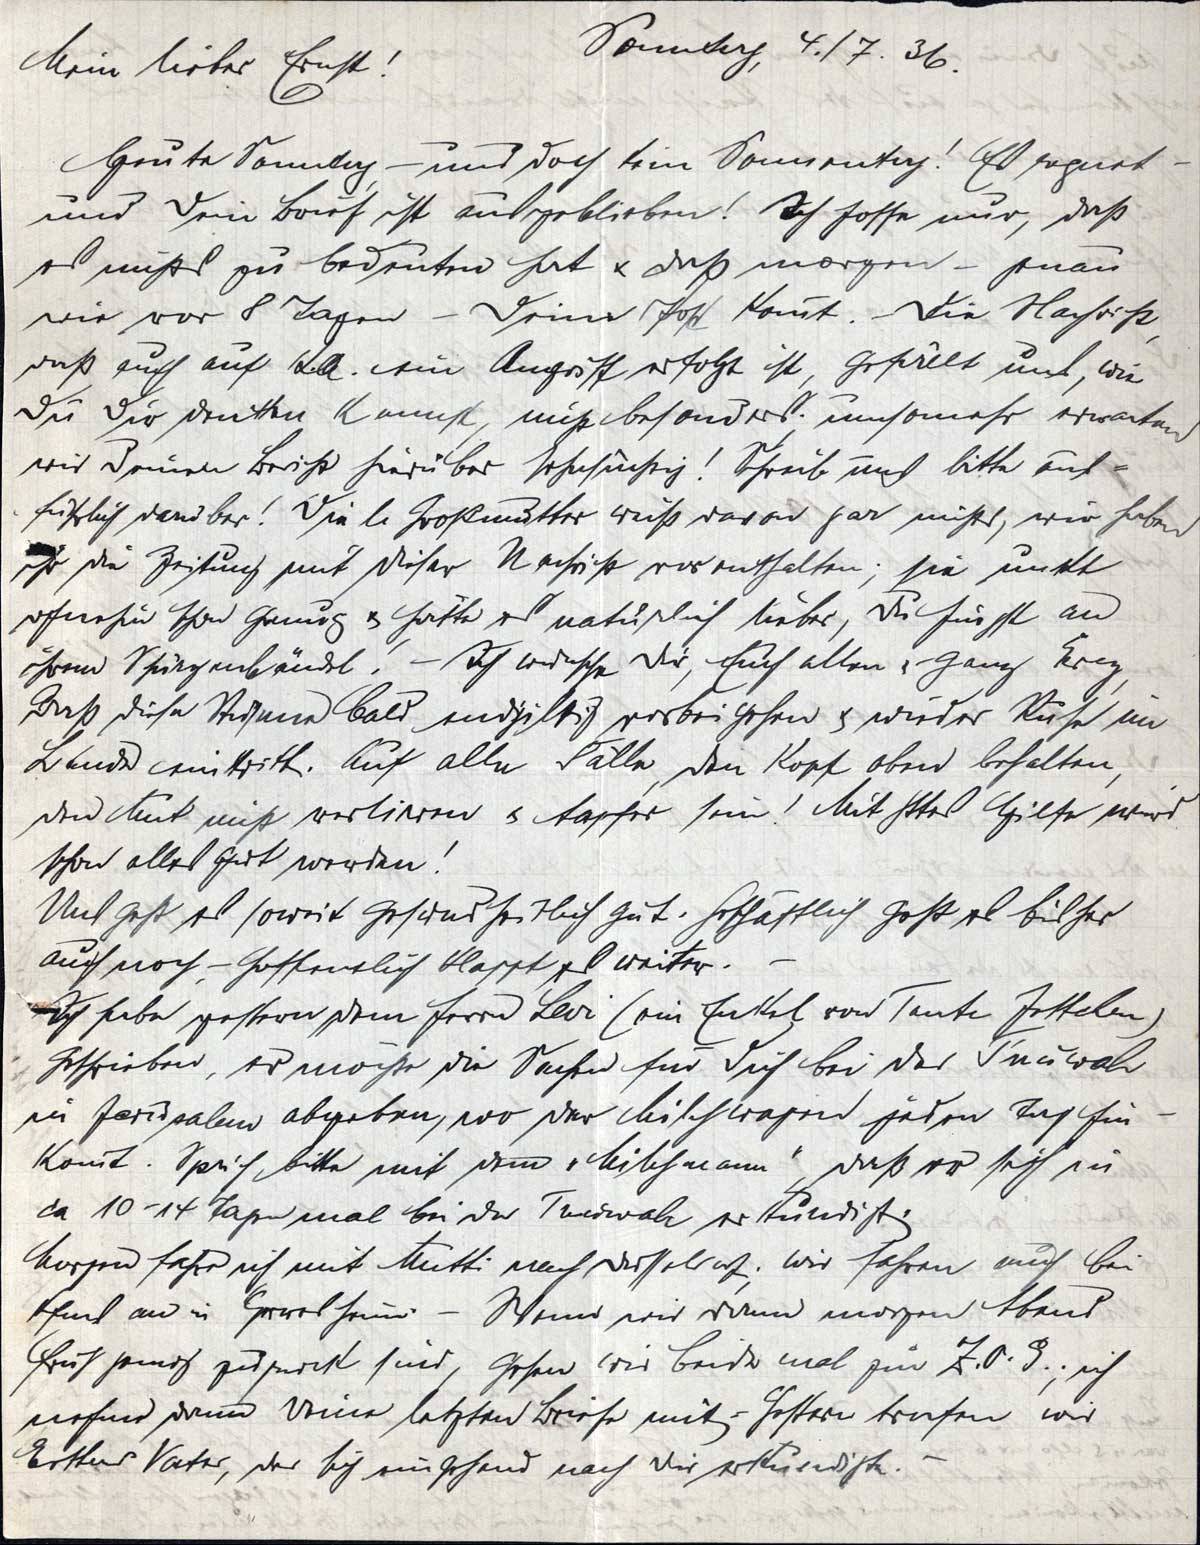 Sonntag, 4./7. 36.
Mein lieber Ernst!
Heute Sonntag, – und doch kein Sonnentag! Es regnet –
und Dein Brief ist ausgeblieben! Ich hoffe nur, daß
es nichts zu bedeuten hat & daß morgen – genau
wie vor 8 Tagen – Deine Post komt. – Die Nachricht,
daß auch auf K.A. ein Angriff erfolgt ist, gefällt uns, wie
Du Dir denken kannst, nicht besonders. umsomehr erwarten
wir Deinen Bericht hierüber sehnsüchtig! Schreib uns bitte aus-
führlich darüber! Die l. Großmutter weiß davon gar nichts, wir haben
ihr die Zeitung mit dieser Nachricht vorenthalten; sie unkt
ohnehin schon genug & hätte es natürlich lieber, Du hingst an
ihrem Schürzenbändel! – Ich wünsche Dir, Euch allen & ganz Erez,
daß diese bald endgiltig vorbeigehen & wieder Ruhe im
Lande eintritt. Auf alle Fälle, den Kopf oben behalten,
den Mut nicht verlieren & tapfer sein! Mit Gottes Hilfe wird
schon alles gut werden!
Uns geht es soweit gesundheitlich gut. Geschäftlich geht es bisher
auch noch, – hoffentlich klappt es weiter. –
Ich habe gestern dem Herrn Levi (ein Enkel von Tante Jettchen)
geschrieben, er möchte die Sachen für Dich bei der Tnuwah
in Jerusalem abgeben, wo der Milchwagen jeden Tag hin-
komt. Sprich bitte mit dem „Milchmann", daß er sich in
ca 10–14 Tagen mal bei der Tnuwah erkundigt.
Morgen fahre ich mit Mutti nach Düsseldorf, wir fahren auch bei
an in – Wenn wir dann morgen Abend
früh genug zurück sind, gehen wir beide mal zur Z.O.G., ich
nehme dann Deine letzten Briefe mit. – Gestern trafen wir
Esthers Vater, der sich eingehend nach Dir erkundigte. –